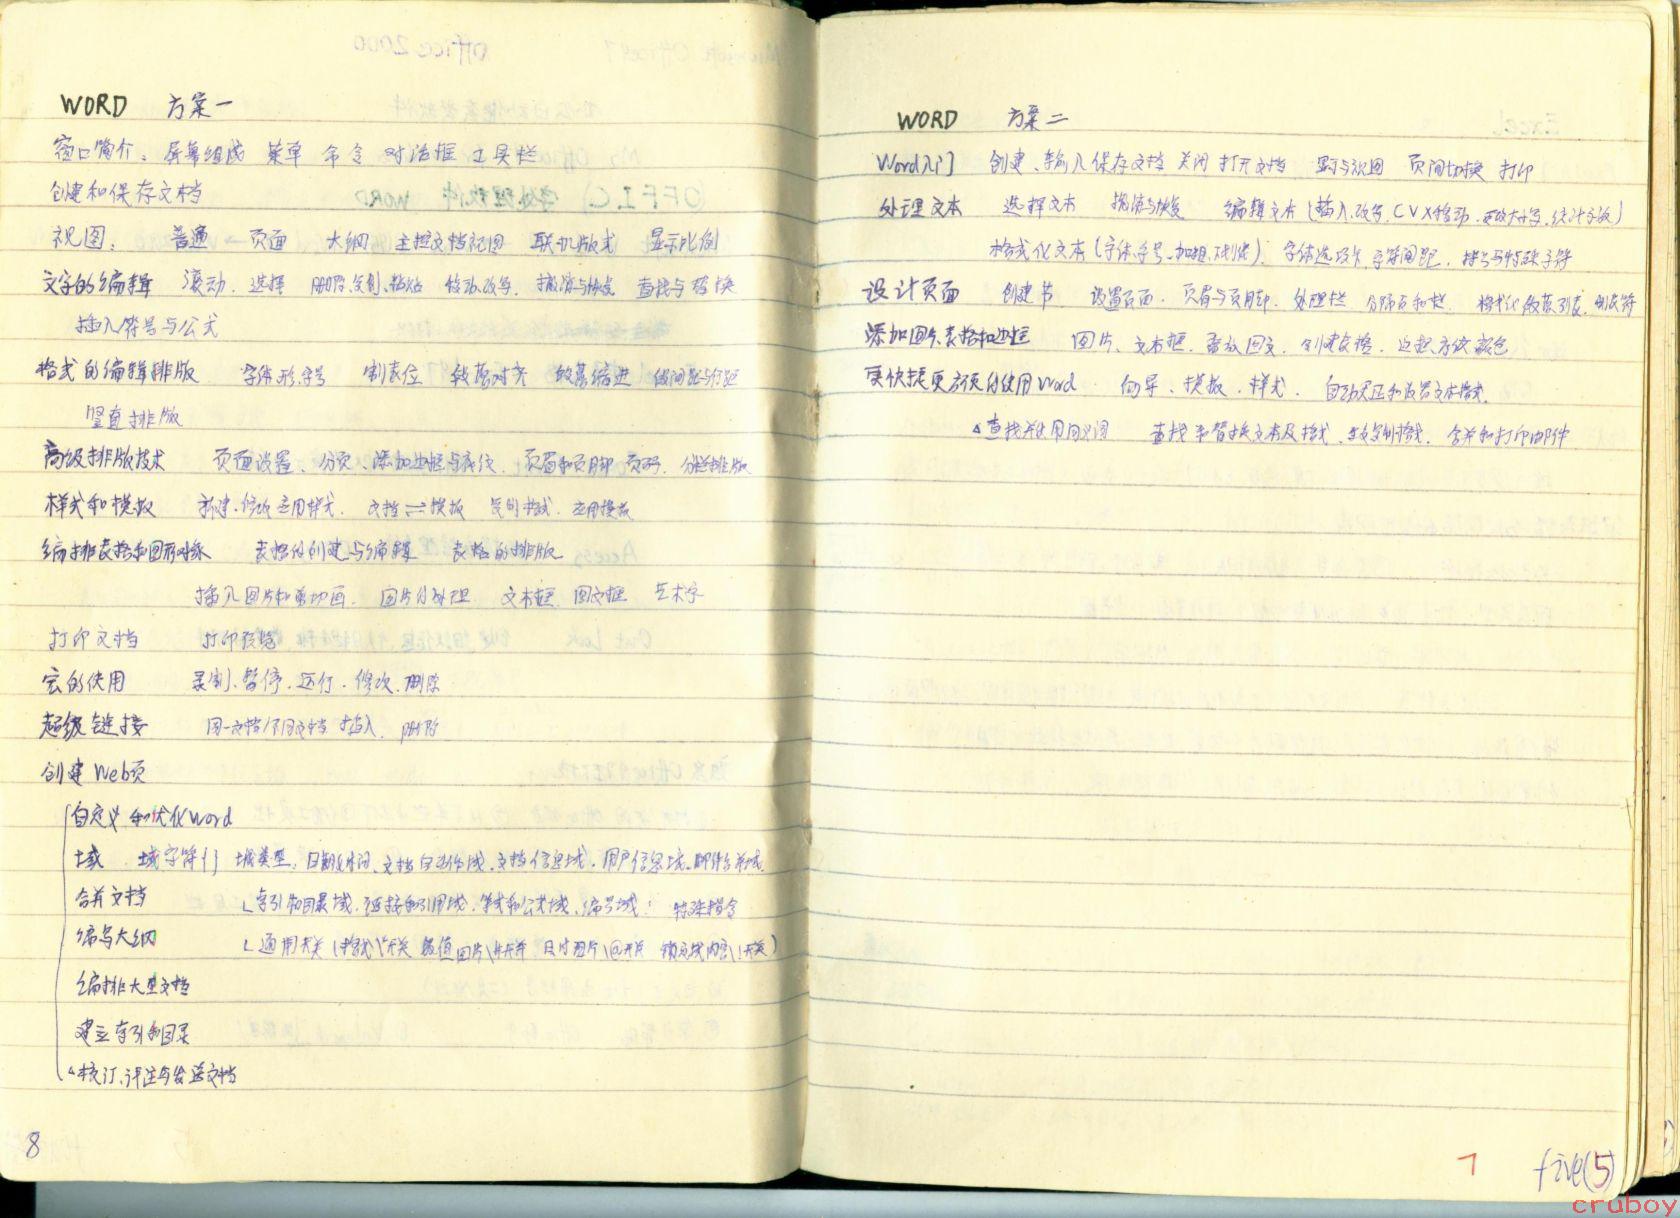 WORD 方案一
窗口简介：屏幕组成 菜单 命令 对话框 工具栏
创建和保存文档
视图： 普通 页面 大纲 主控文档视图 联机版式 显示比例
文字的编辑 滚动、选择 删除、复制、粘贴 移动、改写、撤消与恢复 查找与替换
插入符号与公式
格式的编辑排版 字体、形、字号 制表位 段落对齐 段落缩进 段间距与行距
竖直排版
高级排版技术 页面设置、分页、添加边框与底纹、页眉和页脚 页码、分栏排版
样式和模板 新建、修改、应用样式、文档⇌模板 复制格式、应用模板
编排表格和图形对象 表格的创建与编辑 表格的排版
插入图片和剪切画、图片的处理 文本框、图文框 艺术字
打印文档 打印预览
宏的使用 录制、暂停、运行、修改、删除
超级链接 同一文档/不同文档 插入、删除
创建Web页
自定义和优化Word
域 域字符{} 域类型：日期及时间、文档自动作域、文档信息域、用户信息域、邮件合并域、
合并文档 索引和目录域、链接和引用域、等式和公式域、编号域： 特殊指令
编写大纲 通用开关（格式\*开关 数值图片\#开关 日付图片\@开关 锁定域内容\!开关）
编排大型文档
建立索引和目录
△校订、评注与发送文档
8
WORD 方案二
Word入门 创建、输入保存文档 关闭 打开文档 显示视图 页间切换 打印
处理文本 选择文本 撤消与恢复 编辑文本（插入、改写、CVX移动、更改大小写、统计字数）
格式化文本（字体、字号、加粗、下划线）、字体选项卡、字符间距、符号与特殊字符
设计页面 创建节 设置页面、页眉与页脚、处理栏 分隔页和栏、格式化段落列表、制表符
添加图片、表格和边框 图片、文本框、重放图文、创建表格、边框、底纹、颜色
更快捷更高效的使用Word 向导、模板、样式、自动更正和设置文本格式、
△查找并使用同义词 查找和替换文本及格式、复制格式、合并和打印邮件
7 five(5)
cruboy